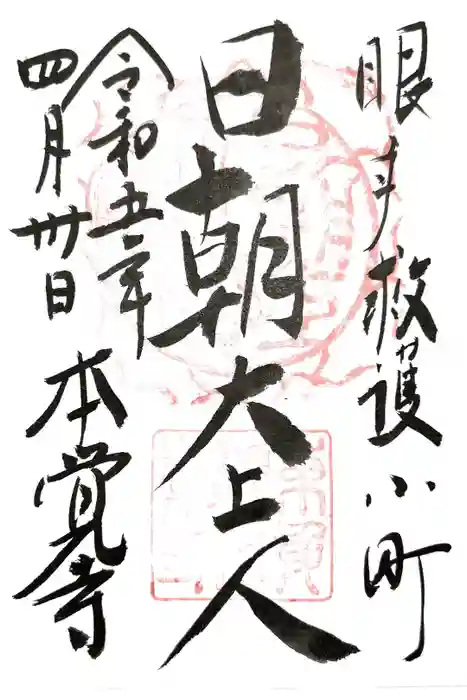 眼守救護小町
日朝大上人
令和五年
四月卅日 本覚寺